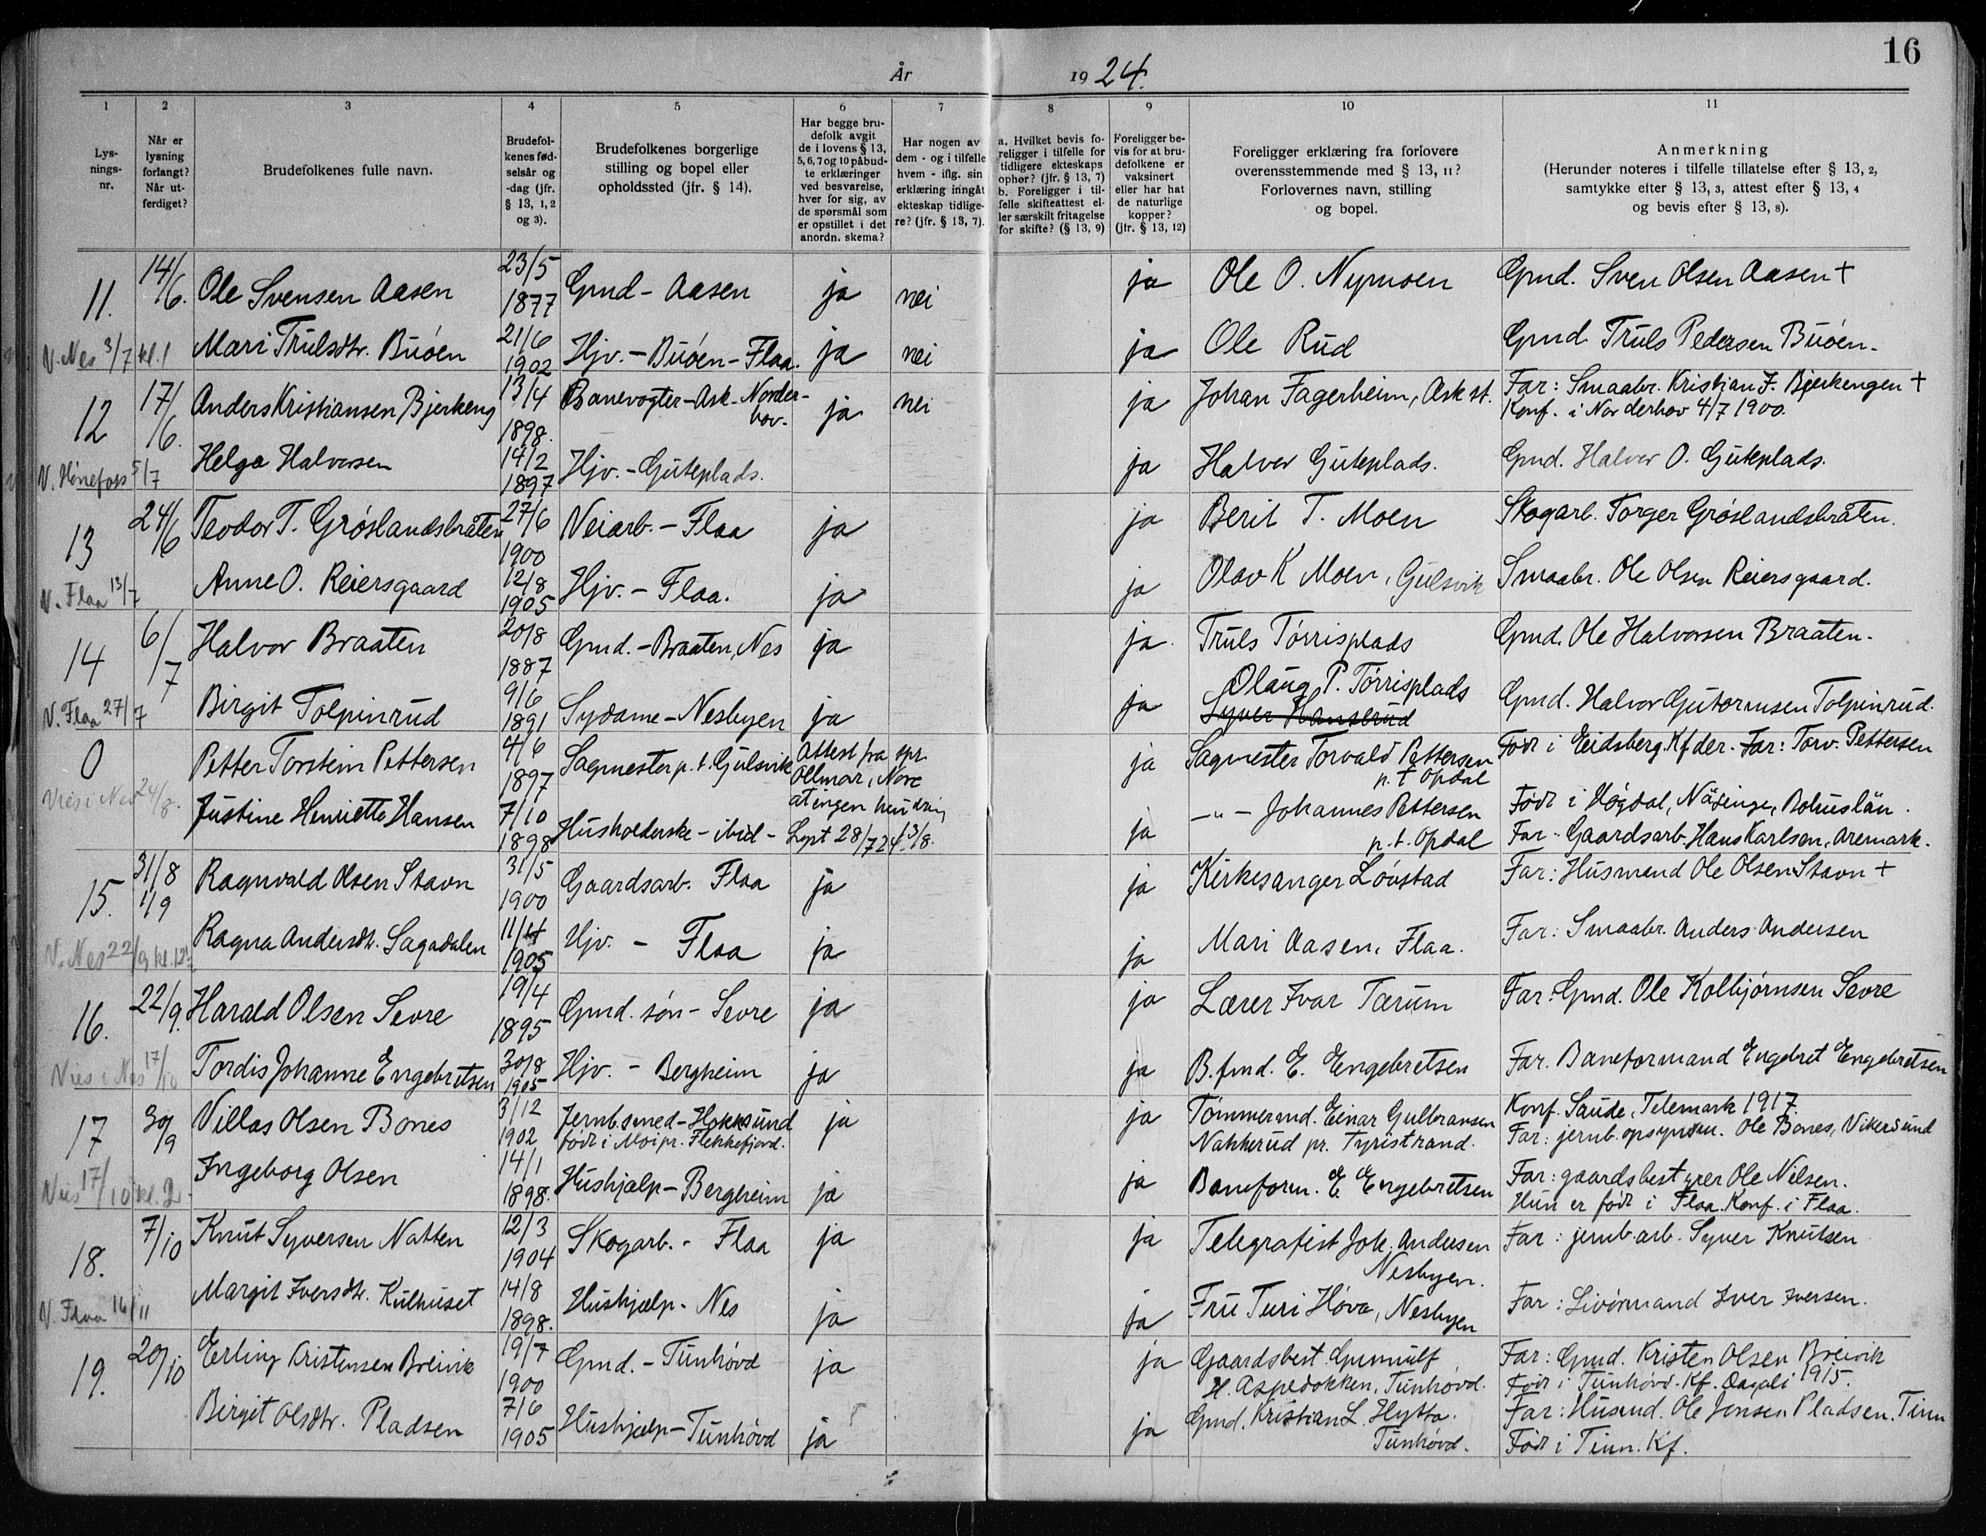 16
År 1924.
1 2 3 4 5 6 7 8 9 10 11
Lysnings-nr.
Når er lysning forlangt? Når utferdiget?
Brudefolkenes fulle navn.
Brudefolkenes fødselsår og -dag (jfr. § 13, 1, 2 og 3).
Brudefolkenes borgerlige stilling og bopel eller opholdssted (jfr. § 14).
Har begge brudefolk avgit de i lovens § 13, 5, 6, 7 og 10 påbudte erklæringer ved besvarelse, hver for sig, av de spørsmål som er opstillet i det anordn. skema?
Har nogen av dem - og i tilfelle hvem - iflg. sin erklæring inngåt ekteskap tidligere? (jfr. § 13, 7).
a. Hvilket bevis foreligger i tilfelle for tidligere ekteskaps ophør? (jfr. § 13, 7) b. Foreligger i tilfelle skifteattest eller særskilt fritagelse for skifte? (§ 13, 9)
Foreligger bevis for at brudefolkene er vaksinert eller har hat de naturlige kopper? (jfr. § 13, 12)
Foreligger erklæring fra forlovere overensstemmende med § 13, 11? Forlovernes navn, stilling og bopel.
Anmerkning (Herunder noteres i tilfelle tillatelse efter § 13, 2, samtykke efter § 13, 3, attest efter § 13, 4 og bevis efter § 13, 8).
11. 14/6. Ole Svensen Aasen 23/5 1877 Gmd - Aasen ja nei ja Ole O. Nymoen Gmd. Sven Olsen Aasen +
V. Nes 3/7 kl. 1 Mari Trulsdtr. Buøen 21/6 1902 Hjv. - Buøen - Flaa. ja nei ja Ole Rud Gmd Truls Pedersen Buøen -
12 17/6. Anders Kristiansen Bjerkeng 13/4 1898. Banevogter - Ask - Norderhov. ja nei ja Johan Fagerheim, Ask st. Far: Smaabr. Kristian F. Bjerkengen +
Konf. i Norderhov 4/7 1900.
V. Hønefoss 5/7 Helga Halvorsen 14/2 1897 Hjv. - Guteplads. ja Halvor Guteplads. Gmd. Halvor O. Guteplads.
13 24/6 Teodor T. Grøslandsbråten 27/6 1900 Veiarb. - Flaa ja ja Berit T. Moen Skogarb. Torger Grøslandsbråten.
V. Flaa 13/7 Anne O. Reiersgaard 12/8 1905 Hjv. - Flaa. ja ja Olav K Moen, Gulsvik Smaabr. Ole Olsen Reiersgaard.
14 6/7 Halvor Braaten 20/8 1887 Gmd. - Braaten, Nes ja ja. Truls Tørrisplads Gmd. Ole Halvorsen Braaten -
V. Flaa 27/7 Birgit Tolpinrud 9/6 1891 Sydame - Nesbyen ja ja Olaug P. Tørrisplads Gmd. Halvor Gutormsen Tolpinrud.
Syver Hansrud
0 Petter Torstein Pettersen 4/6 1897 Sagmester p. t. Gulsvik Attest fra spr. Ollmar, Nore at ingen hindring ja Sagmester Torvald Pettersen p. t. Opdal Født i Eidsberg. Kf der. Far: Torv. Pettersen
Vies i Nes 24/8. Justine Henriette Hansen 7/10 1898 Husholderske - ibid - Lyst 28/7 24. 3/8. ja -"- Johannes Pettersen p. t. Opdal Født i Högdal, Näsinge, Bohuslän.
Far - Gaardsarb. Hans Karlsen, Aremark.
15. 31/8 1/9 Ragnvald Olsen Stavn 31/5 1900 Gaardsarb. Flaa ja ja Kirkesanger Løvstad Far: Husmand Ole Olsen Stavn +
V. Nes 22/9 kl. 12 Ragna Andersdtr. Sagadalen 11/4 1905 Hjv. - Flaa ja ja Mari Aasen, Flaa. Far: Smaabr. Anders Andersen
16. 22/9. Harald Olsen Sevre 19/4 1895 Gmd. søn - Sevre ja ja Lærer Ivar Tærum Far: Gmd. Ole Kolbjørnsen Sevre
Vies i Nes 17/10 Tordis Johanne Engebretsen 30/8 1905 Hjv. - Bergheim ja ja B.fmd. E. Engebretsen Far. Baneformand Engebret Engebretsen
17 30/9 Villas Olsen Bones 3/12 1902 Jernb.smed - Hokksund født i Moi pr. Flekkefjord. ja ja Tømmermd. Einar Gulbransen Nakkerud pr. Tyristrand. Konf. Saude, Telemark 1917.
Far: jernb. opsynsm. Ole Bones, Vikersund
Vies 17/10 kl. 2 Ingeborg Olsen 14/1 1898. Hushjælp - Bergheim ja ja Baneform. E. Engebretsen Far: gaardsbestyrer Ole Nilsen.
Hun er født i Flaa. Konf. i Flaa.
18. 7/10 Knut Syversen Natten 12/3 1904 Skogarb. - Flaa ja ja Telegrafist Joh. Andersen Nesbyen. Far: jernb.arb. Syver Knutsen
V. Flaa 16/11 Margit Iversdtr. Kulhuset 14/8 1898. Hushjælp - Nes ja ja Fru Turi Hóva, Nesbyen Far: Livørmand Iver Iversen.
19. 20/10 Erling Kristensen Breivik 19/7 1900 Gmd. - Tunhövd ja ja Gaardsbest. Gunnulf H. Aspedokken, Tunhövd. Far: Gmd. Kristen Olsen Breivik
Født i Tunhövd. Kf. Dagali 1915.
Birgit Olsdtr. Pladsen 7/6 1905 Hushjælp - Tunhövd ja ja Gmd. Kristian L. Hytta. Tunhövd. Far: Husmd. Ole Jensen Pladsen, Tinn
Født i Tinn. Kf.